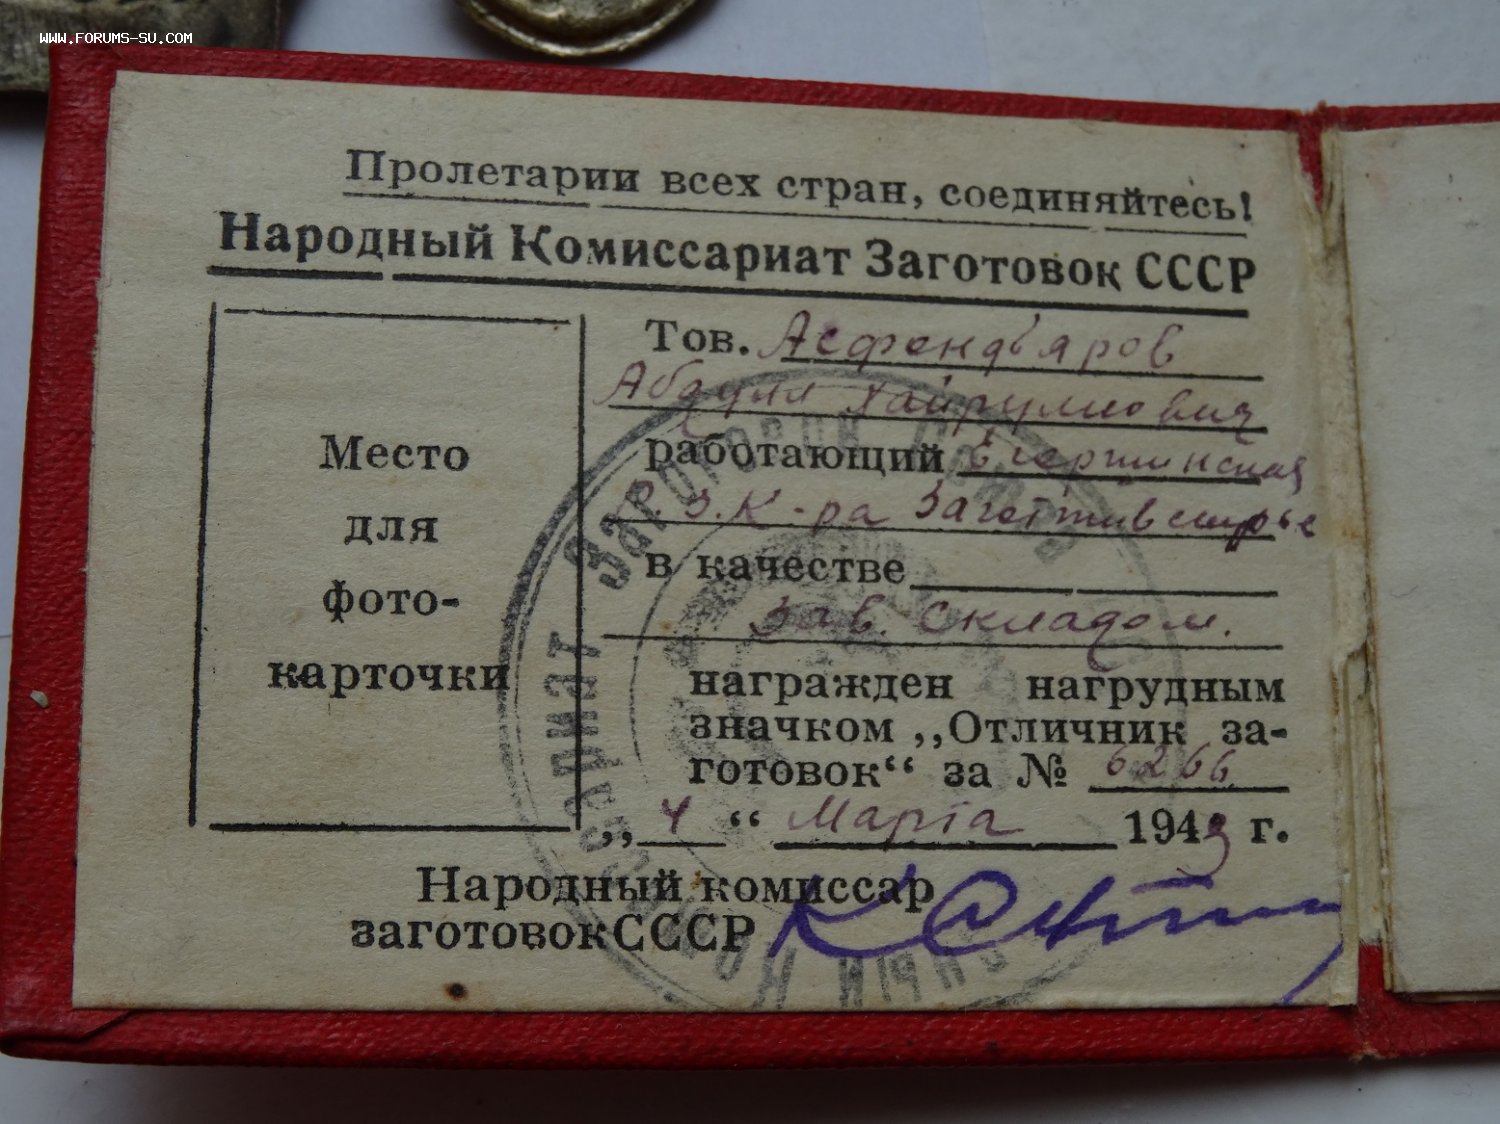 WWW.FORUMS-SU.COM
Пролетарии всех стран, соединяйтесь!
Народный Комиссариат Заготовок СССР
Место
для
фото-
карточки
Тов. Асфендьяров
Абдул Хайруллович
работающий
К-ра Заготживсырье
в качестве
Зав. Складом.
награжден нагрудным
значком „Отличник за-
готовок“ за № 6266
„ 4 “ Марта 1943 г.
Народный комиссар
заготовок СССР